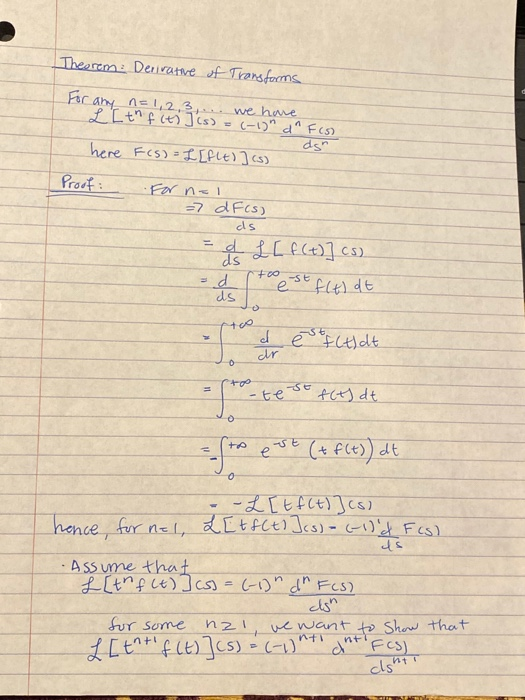 Theorem: Derivative of Transforms
For any n=1,2,3,... we have
ℒ[tⁿf(t)](s) = (-1)ⁿ dⁿ F(s)
dsⁿ
here F(s) = ℒ[f(t)](s)
Proof: · For n=1
=> dF(s)
ds
= d ℒ[f(t)](s)
ds
= d ∫₀^{+∞} e^{-st} f(t) dt
ds
= ∫₀^{+∞} d e^{-st} f(t) dt
dr
= ∫₀^{+∞} -te^{-st} f(t) dt
= -∫₀^{+∞} e^{-st} (t f(t)) dt
= -ℒ[tf(t)](s)
hence, for n=1, ℒ[tf(t)](s) = (-1)¹ d F(s)
ds
· Assume that
ℒ[tⁿf(t)](s) = (-1)ⁿ dⁿ F(s)
dsⁿ
for some n≥1, we want to show that
ℒ[tⁿ⁺¹ f(t)](s) = (-1)ⁿ⁺¹ dⁿ⁺¹ F(s)
dsⁿ⁺¹